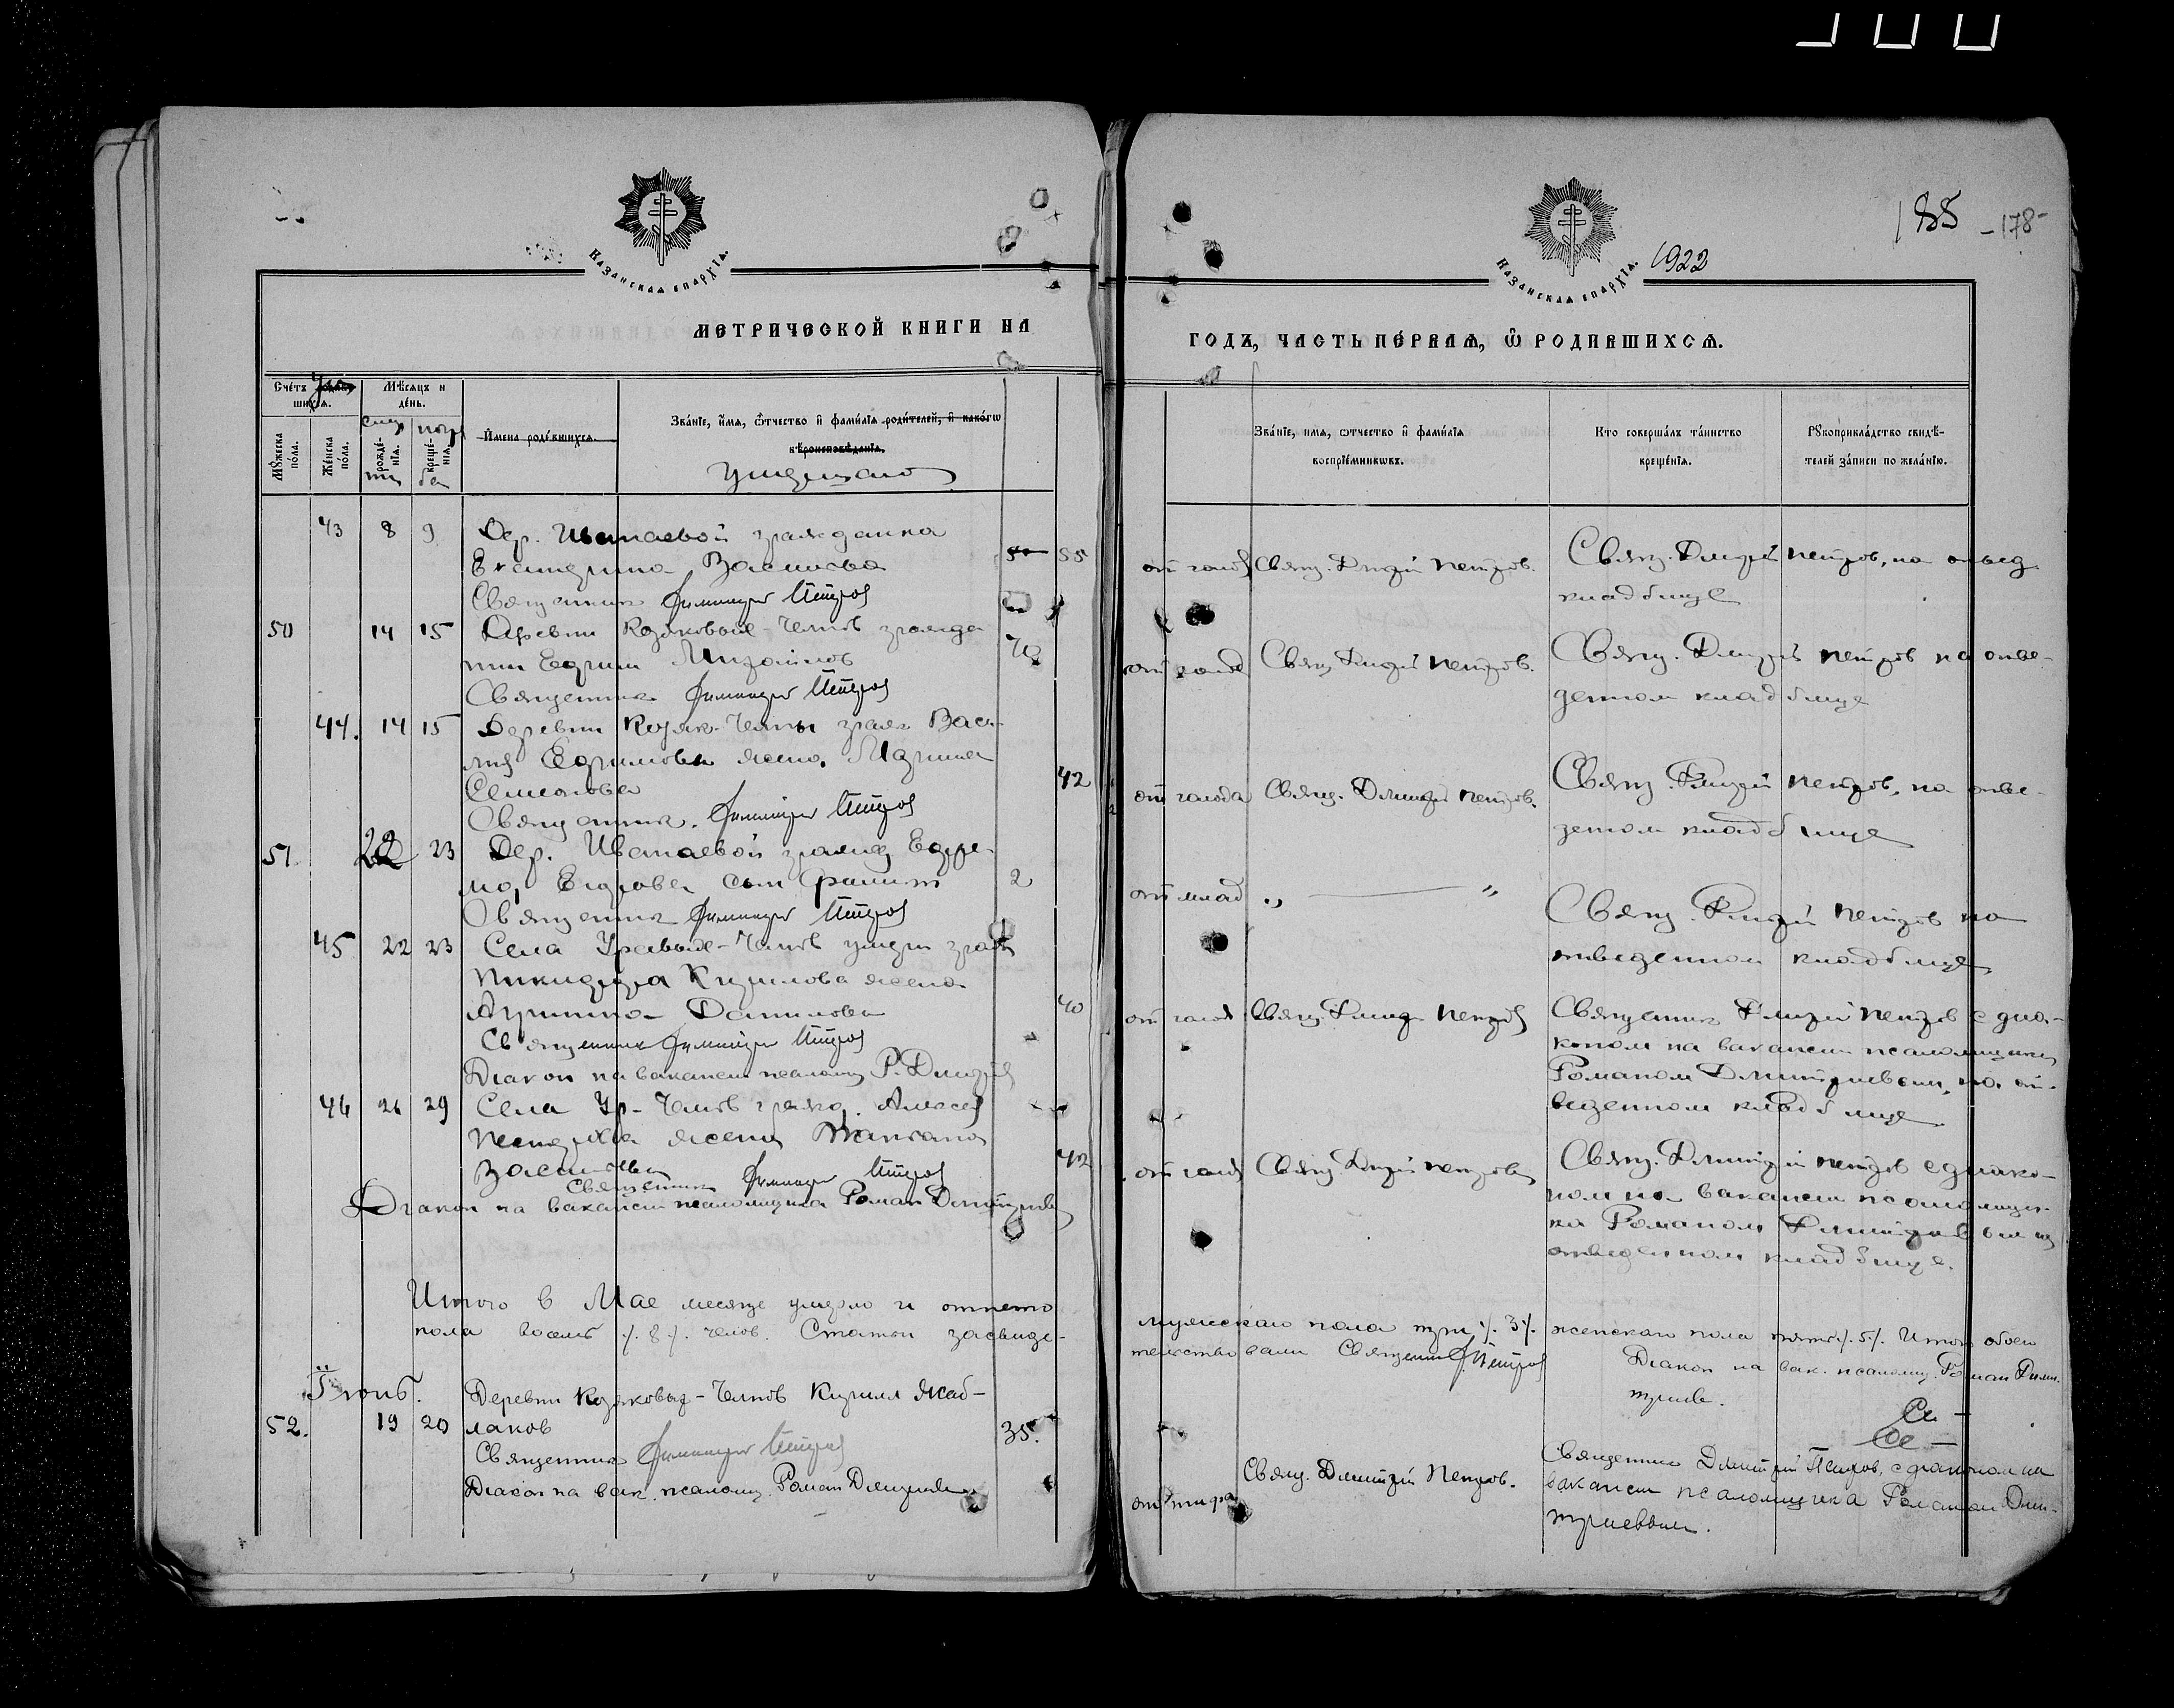 185 -178-
КАЗАНСКАЯ ЕПАРХІЯ.
КАЗАНСКАЯ ЕПАРХІЯ. 1922
МЕТРИЧЕСКОЙ КНИГИ НА
ГОДЪ, ЧАСТЬ ПЕ́РВАѦ, Ѽ РОДИВШИХСѦ.
Счéтъ
Мѣ́сѧцъ и дéнь.
Мꙋ́жеска по́ла.
Же́нска по́ла.
рожде́нїѧ.
креще́нїѧ.
И҆мена̀ роди́вшихсѧ.
Зва́нїе, и҆́мѧ, ѻ҆́тчество и҆ фами́лїѧ роди́телей, и҆ како́гѡ
вѣроисповѣ́данїѧ.
умершаго
Зва́нїе, и҆́мѧ, ѻ҆́тчество и҆ фами́лїѧ
воспрїе́мникѡвъ.
Кто̀ соверша́лъ та́инство
креще́нїѧ.
Рꙋкоприкла́дство свидѣ́-
телей за́писи по жела́нїю.
43 8 9 Дер. Иштаевой гражданка
Екатерина Васильева 55
Священник Димитрий Петров
от голод Свящ. Дмтрий Петров.
Свящ. Дмтрий Петров, на отвед.
кладбище
50 14 15 Деревни Козяковых-Челнов гражда
нин Ефрим Михайлов 70
Священник Димитрий Петров
от голод Свящ. Дмтрий Петров.
Свящ. Дмтрий Петров на отве-
деном кладбище
44. 14 15 Деревни Козяк-Челны граж Васи-
лия Ефимова жена Марина
Семенова 42
Священник. Димитрий Петров
от голода Свящ. Дмитрий Петров.
Свящ. Дмтрий Петров, на отве-
деном кладбище
51. 22 23 Дер. Иштаевой гражд Ефре-
ма Егорова сын Филипп 2
Священник Димитрий Петров
от млад „ — "
Свящ. Дмтрий Петров на
отведенном кладбище
45 22 23 Села Уреевых-Челнов умерш граж
Никифора Кирилова жена
Агрипина Данилова 40
Священник Димитрий Петров
Диакон на вакансии псаломщ Р. Дмитр
от голод Свящ Дмитр Петров
Священник Дмтрий Петров с диа-
коном на вакансии псаломщика
Романом Дмитриевым, на от-
веденном кладбище
46 26 29 Села Ур-Челнов гражд. Алексея
жена
Васильева 42
Священник Димитрий Петров
Диакон на вакансии псаломщика Роман Дмитриев
от голод Свящ Дмтрий Петров
Свящ. Дмитрий Петров с диако-
ном на вакансии псаломщи-
ка Романом Дмитриевым на
отведенном кладбище.
Итого в Мае месяце умерло и отпето
мужскаго пола три /. 3 /. женскаго пола пять /. 5 /. Итого обоего
пола восемь /. 8 /. челов. Статьи засвиде-
тельствовали Священник Д. Петров
Диакон на вак. псаломщ. Роман Дими-
триев.
Iюнь.
52. 19 20 Деревни Козяковых-Челнов Кирилл Жаб-
лаков 35.
Священник Димитрий Петров
Диакон на вак. псаломщ. Роман Дмитриев
от тифа
Свящ. Дмитрий Петров.
Священник Дмитрий Петров, с диаконом на
вакансии псаломщика Романом Дми-
триевым.